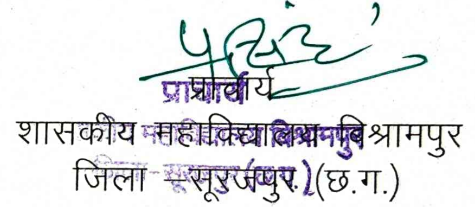 प्राचार्य
शासकीय महाविद्यालय विश्रामपुर
जिला - सूरजपुर (छ.ग.)